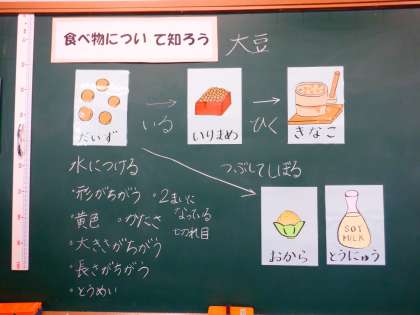 食べ物について知ろう
大豆
だいず
いる
いりまめ
ひく
きなこ
水につける
つぶしてしぼる
・形がちがう
・2まいに
なっている
切れ目
・黄色
・かたさ
・大きさがちがう
・長さがちがう
・とうめい
おから
とうにゅう
SOY
MILK